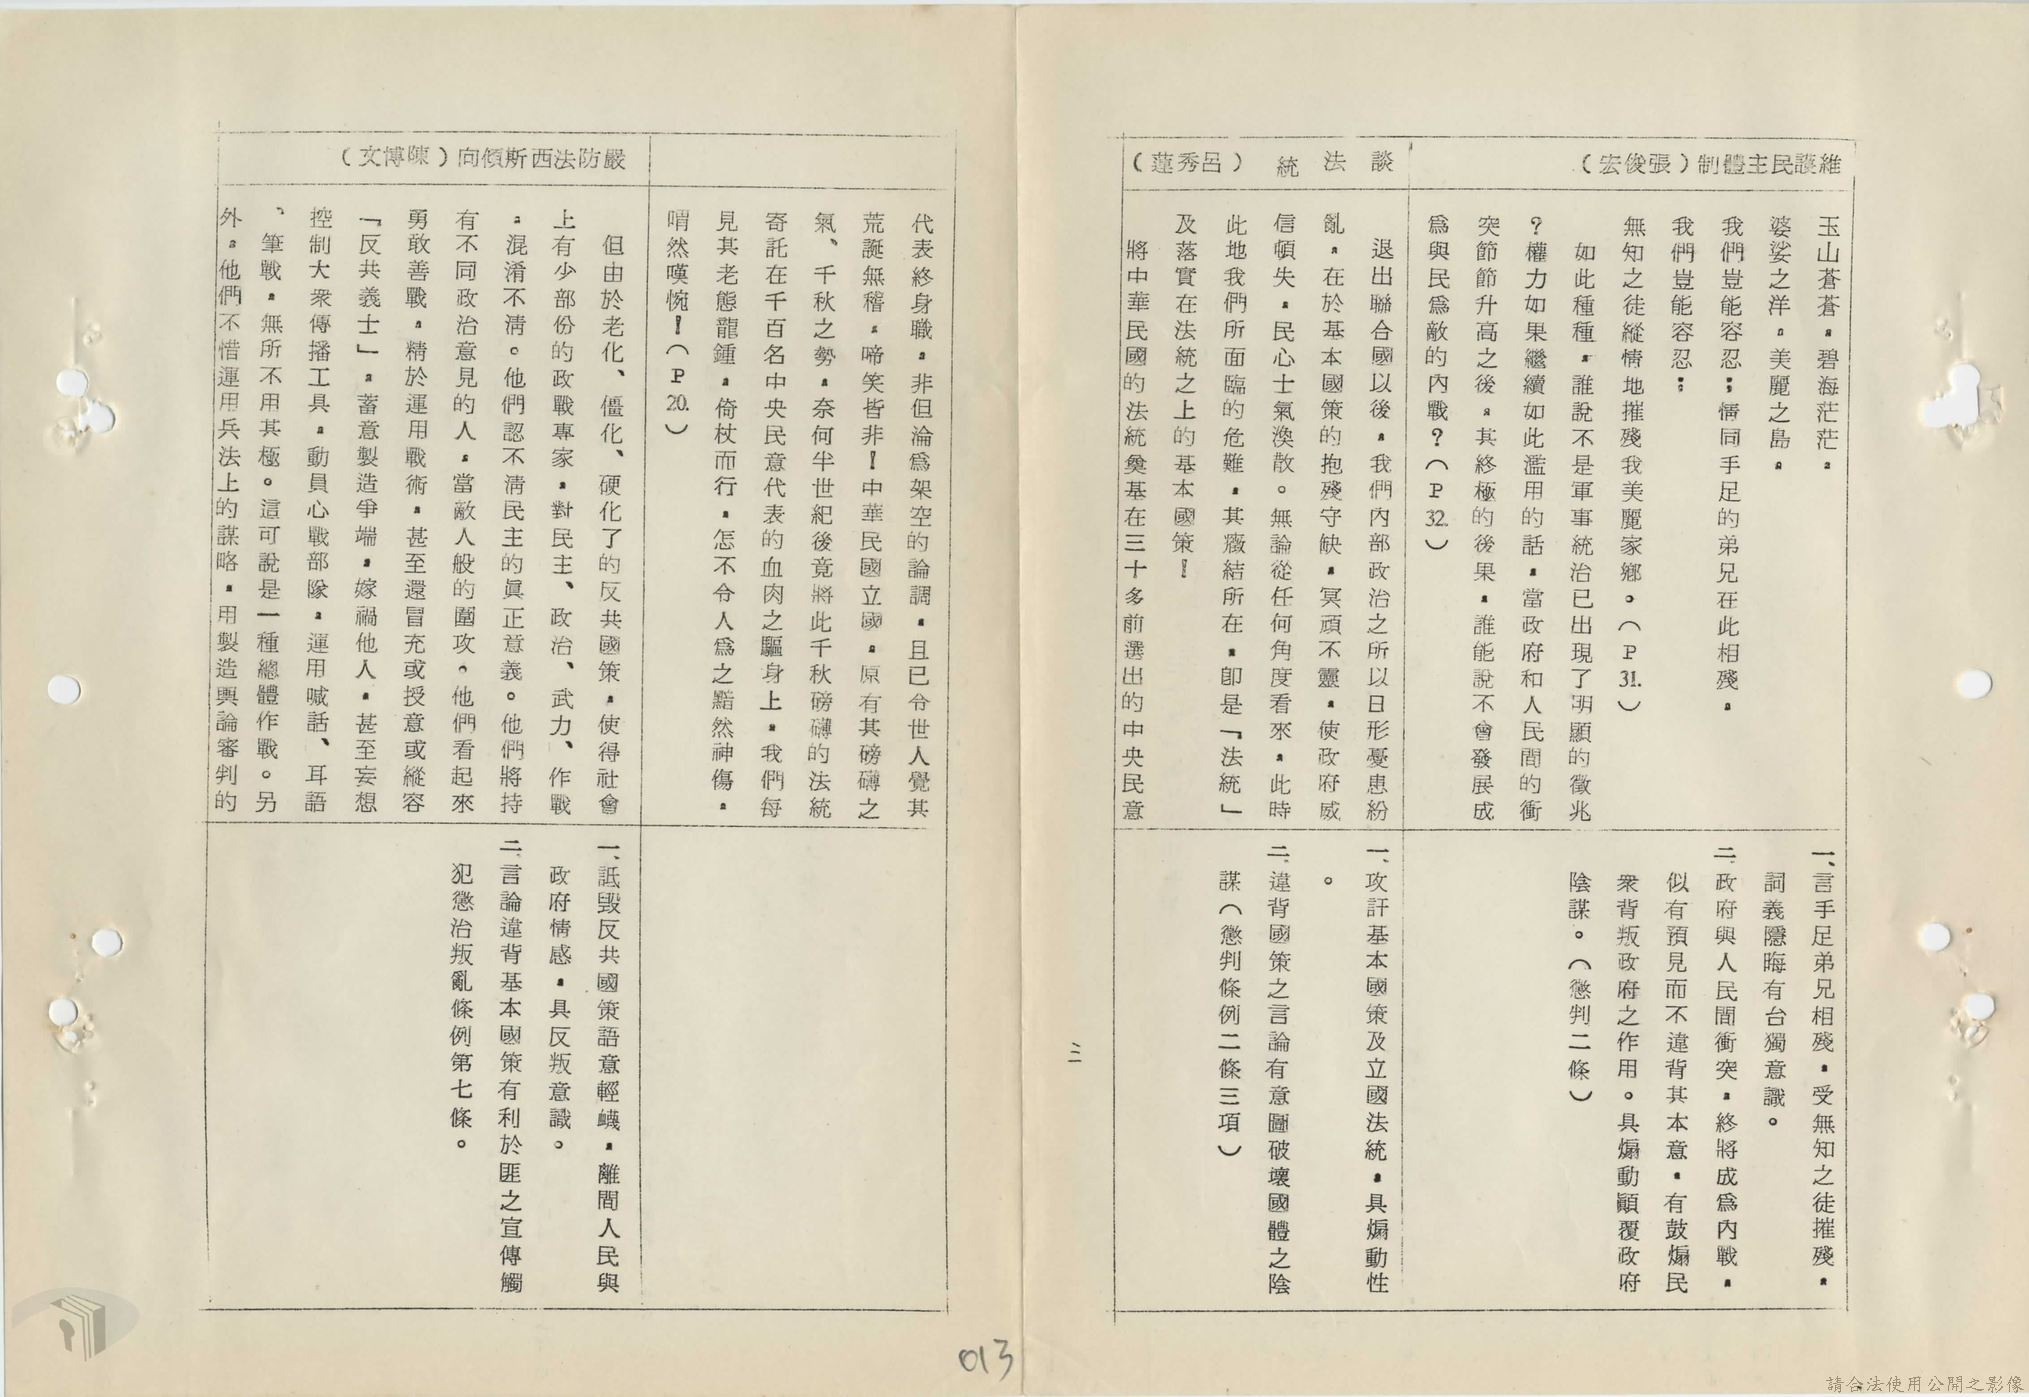 維護民主體制（張俊宏）
玉山蒼蒼，碧海茫茫，
婆娑之洋，美麗之島，
我們豈能容忍；情同手足的弟兄在此相殘，
我們豈能容忍；
無知之徒縱情地摧殘我美麗家鄉。（P 31.）
如此種種，誰說不是軍事統治已出現了明顯的徵兆
？權力如果繼續如此濫用的話，當政府和人民間的衝
突節節升高之後，其終極的後果，誰能說不會發展成
為與民為敵的內戰？（P 32.）
一、言手足弟兄相殘，受無知之徒摧殘，
詞義隱晦有台獨意識。
二、政府與人民間衝突，終將成為內戰，
似有預見而不違背其本意，有鼓煽民
衆背叛政府之作用。具煽動顚覆政府
陰謀。（懲判二條）
談法統（呂秀蓮）
退出聯合國以後，我們內部政治之所以日形憂患紛
亂，在於基本國策的抱殘守缺，冥頑不靈，使政府威
信頓失，民心士氣渙散。無論從任何角度看來，此時
此地我們所面臨的危難，其癥結所在，即是「法統」
及落實在法統之上的基本國策！
將中華民國的法統奠基在三十多前選出的中央民意
一、攻訐基本國策及立國法統，具煽動性
。
二、違背國策之言論有意圖破壞國體之陰
謀（懲判條例二條三項）
三
代表終身職，非但淪為架空的論調，且已令世人覺其
荒誕無稽，啼笑皆非！中華民國立國，原有其磅礴之
氣、千秋之勢，奈何半世紀後竟將此千秋磅礴的法統
寄託在千百名中央民意代表的血肉之驅身上，我們每
見其老態龍鍾，倚杖而行，怎不令人為之黯然神傷，
喟然嘆惋！（P 20.）
嚴防法西斯傾向（陳博文）
但由於老化、僵化、硬化了的反共國策，使得社會
上有少部份的政戰專家，對民主、政治、武力、作戰
，混淆不清。他們認不清民主的眞正意義。他們將持
有不同政治意見的人，當敵人般的圍攻。他們看起來
勇敢善戰，精於運用戰術，甚至還冒充或授意或縱容
「反共義士」，蓄意製造爭端，嫁禍他人，甚至妄想
控制大衆傳播工具，動員心戰部隊，運用喊話、耳語
、筆戰，無所不用其極。這可說是一種總體作戰。另
外，他們不惜運用兵法上的謀略，用製造輿論審判的
一、詆毀反共國策語意輕衊，離間人民與
政府情感，具反叛意識。
二、言論違背基本國策有利於匪之宣傳觸
犯懲治叛亂條例第七條。
013
請合法使用公開之影像